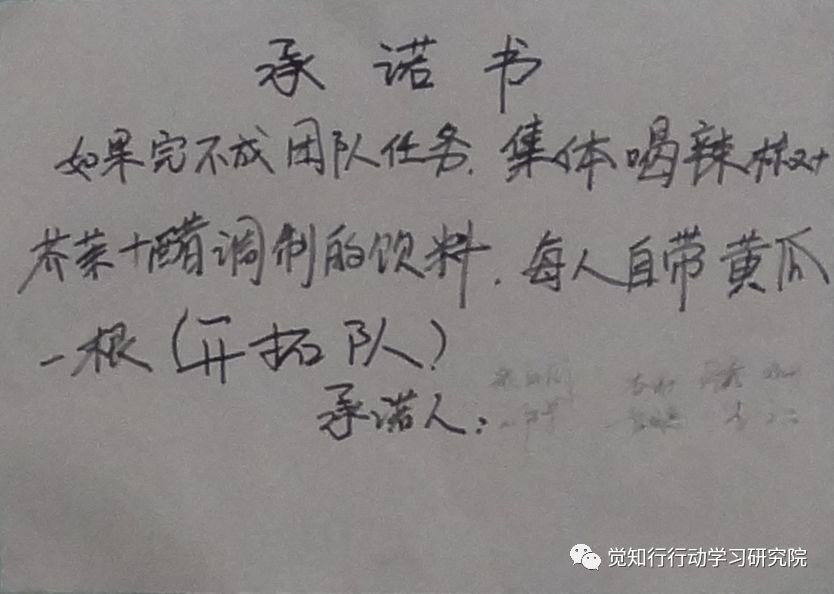 承诺书
如果完不成团队任务.集体喝辣椒+
芥菜+醋调制的饮料.每人自带黄瓜
一根(开拓队)
承诺人:
觉知行行动学习研究院